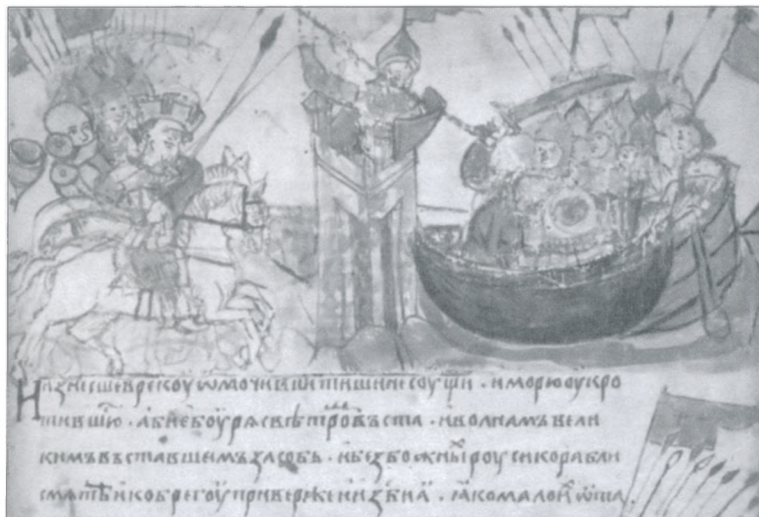 Изнесше в рекоу ѡмочивше тишине соущи · и морю оукро
тившюсѧ · абие боурѧ с вѣтроⷨ въста · и волнамъ вели
кимъ въставшемъ засобь · и безбожныⷯ роуси корабли
смѧте и к берегоу привержеи изби ꙗ · ꙗко мало иⷯ ѿ